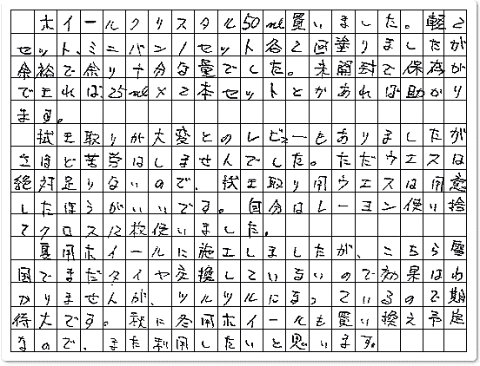 ホイールクリスタル50ml買いました。軽2
セット、ミニバン1セット各2回塗りましたが
余裕で余り十分な量でした。未開封で保存が
できれば25ml×2本セットとかあれば助かり
ます。
拭き取りが大変とのレビューもありましたが
さほど苦労はしませんでした。ただウエスは
絶対足りないので、拭き取り用ウエスは用意
したほうがいいです。自分はレーヨン使い捨
てクロス12枚使いました。
夏用ホイールに施工しましたが、こちら雪
国でまだタイヤ交換していないので効果はわ
かりませんが、ツルツルになっているので期
待大です。秋に冬用ホイールも買い換え予定
なので、また利用したいと思います。